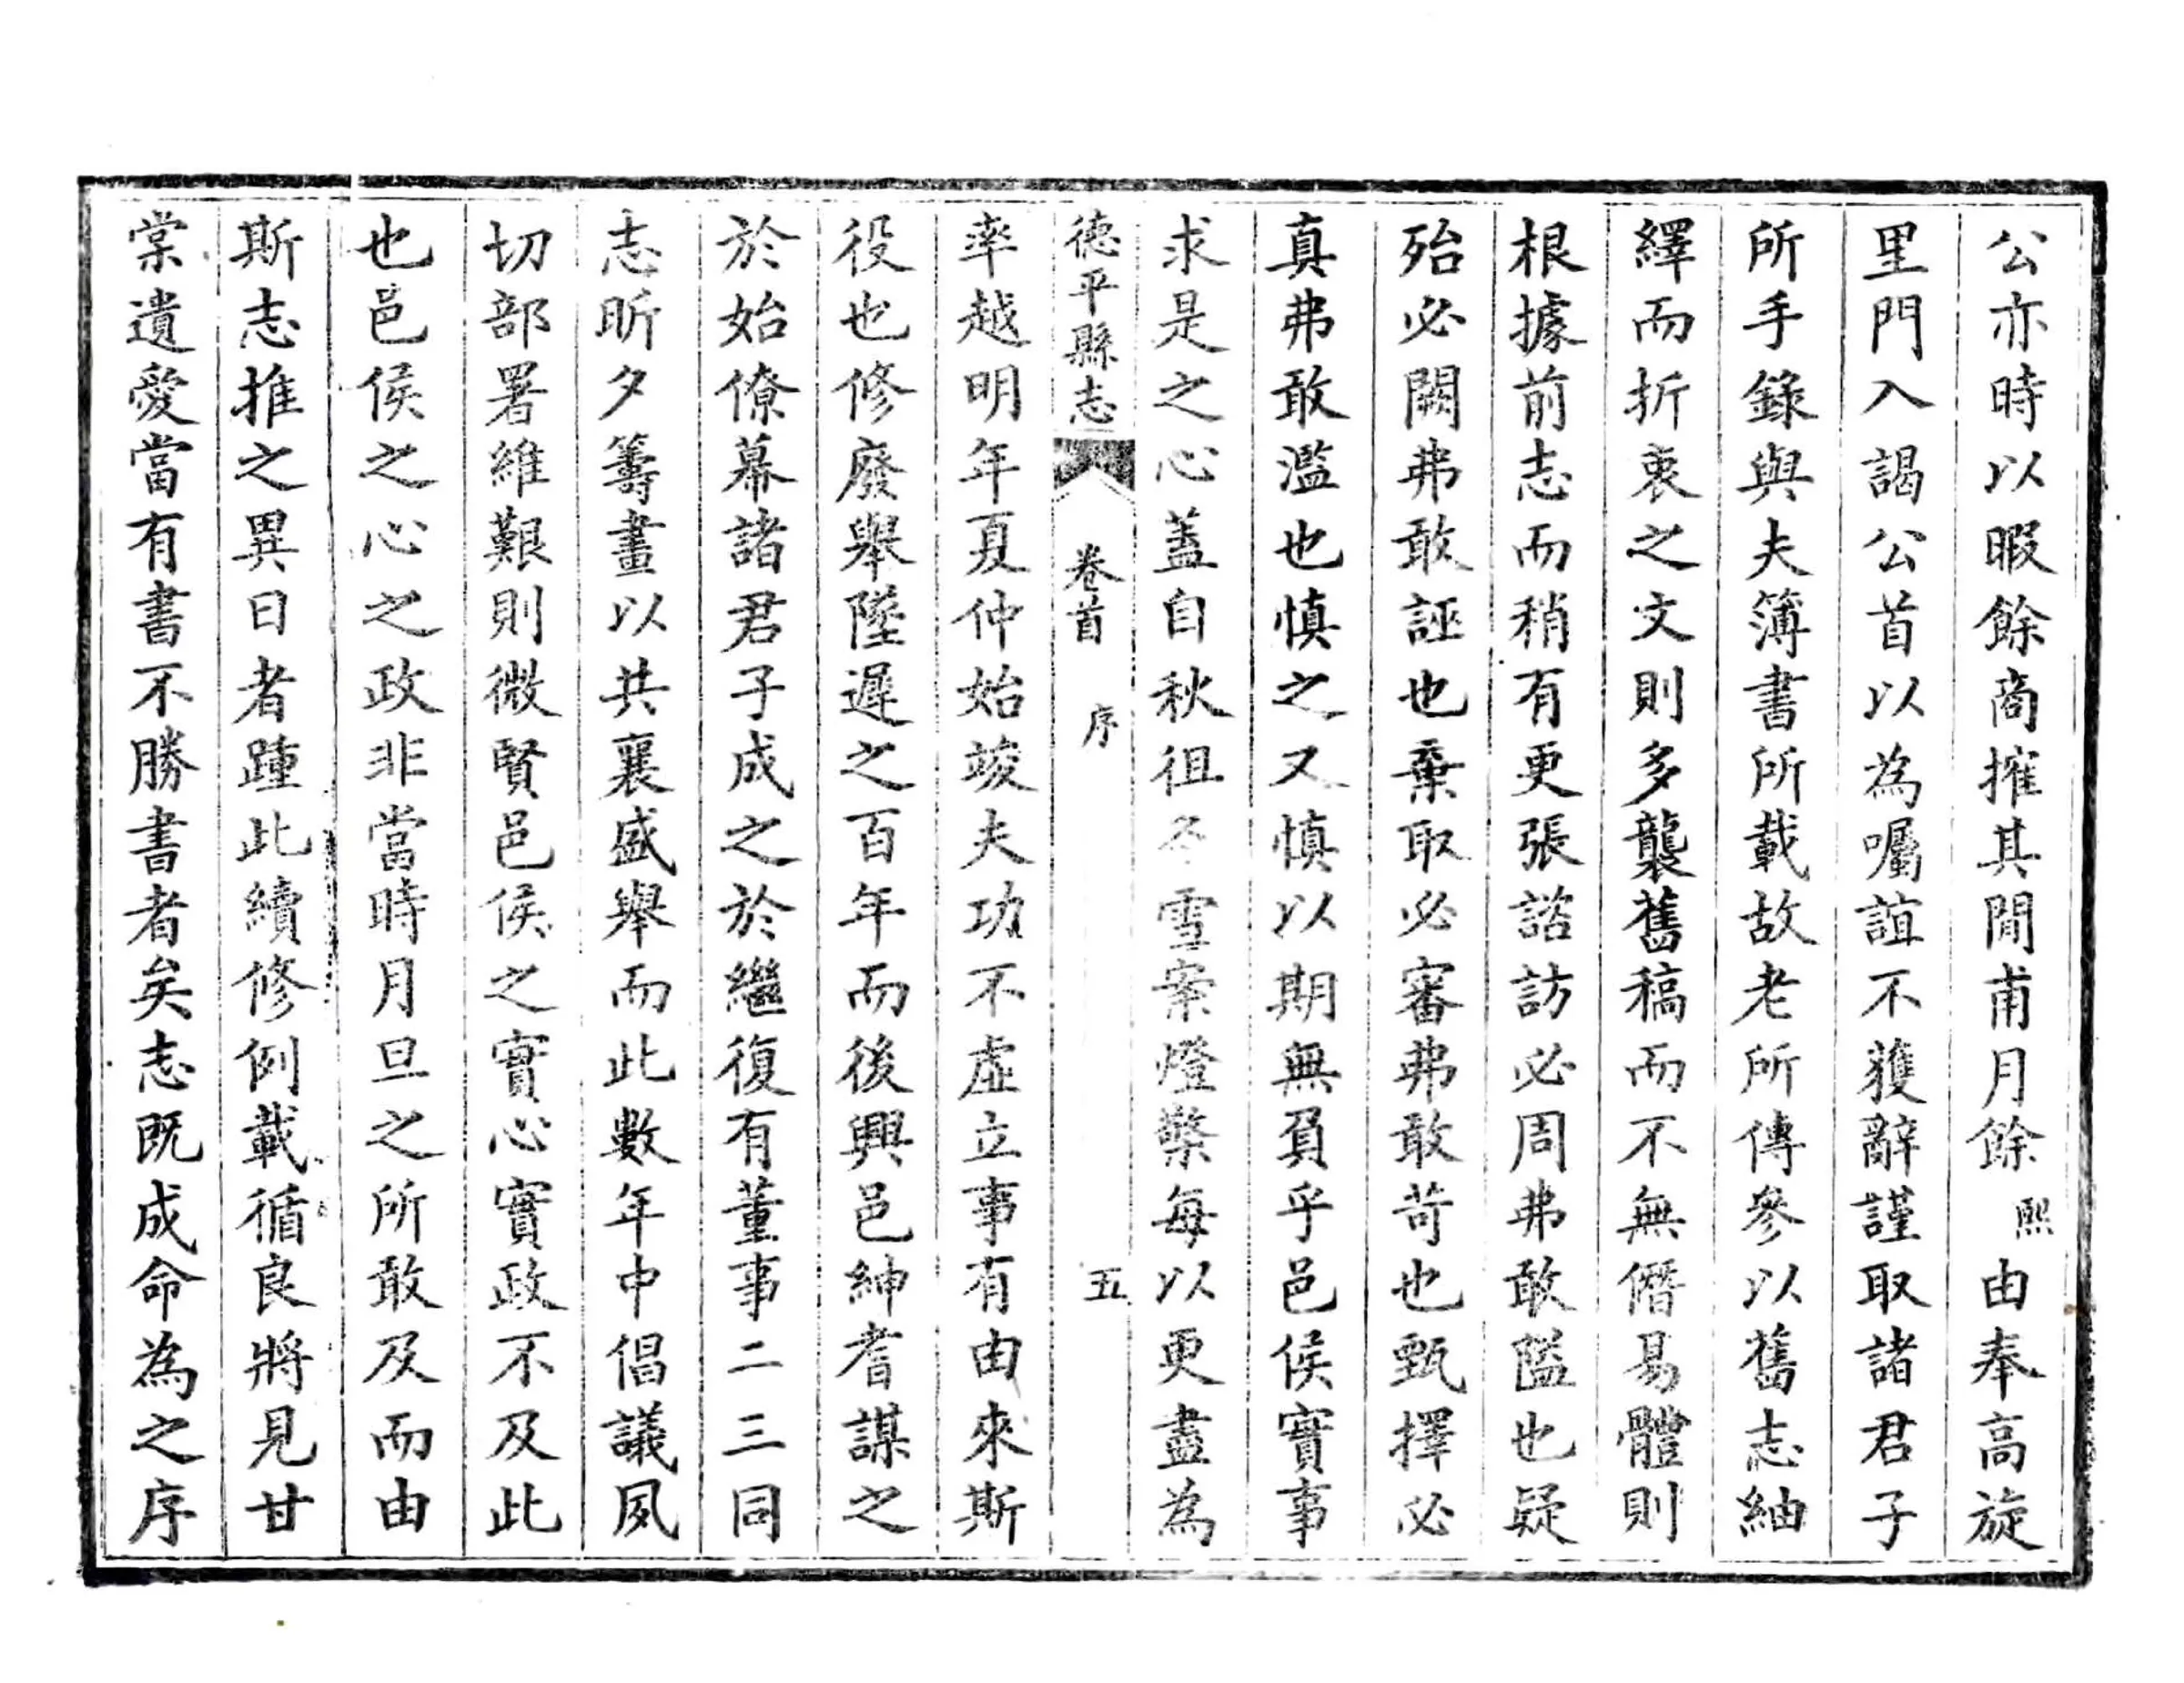 公亦時以暇餘商搉其閒甫月餘熙由奉高旋
里門入謁公首以為囑誼不獲辭謹取諸君子
所手錄與夫簿書所載故老所傳參以舊志紬
繹而折衷之文則多襲舊稿而不無僭易體則
根據前志而稍有更張諮訪必周弗敢隘也疑
殆必闕弗敢誣也棄取必審弗敢苛也甄擇必
真弗敢濫也慎之又慎以期無負乎邑侯實事
求是之心蓋自秋徂冬雪案燈檠每以更盡為
德平縣志 卷首 序 五
率越明年夏仲始竣夫功不虛立事有由來斯
役也修廢舉墜遲之百年而後興邑紳耆謀之
於始僚幕諸君子成之於繼復有董事二三同
志昕夕籌畫以共襄盛舉而此數年中倡議夙
切部署維艱則微賢邑侯之實心實政不及此
也邑侯之心之政非當時月旦之所敢及而由
斯志推之異日者踵此續修例載循良將見甘
棠遺愛當有書不勝書者矣志既成命為之序